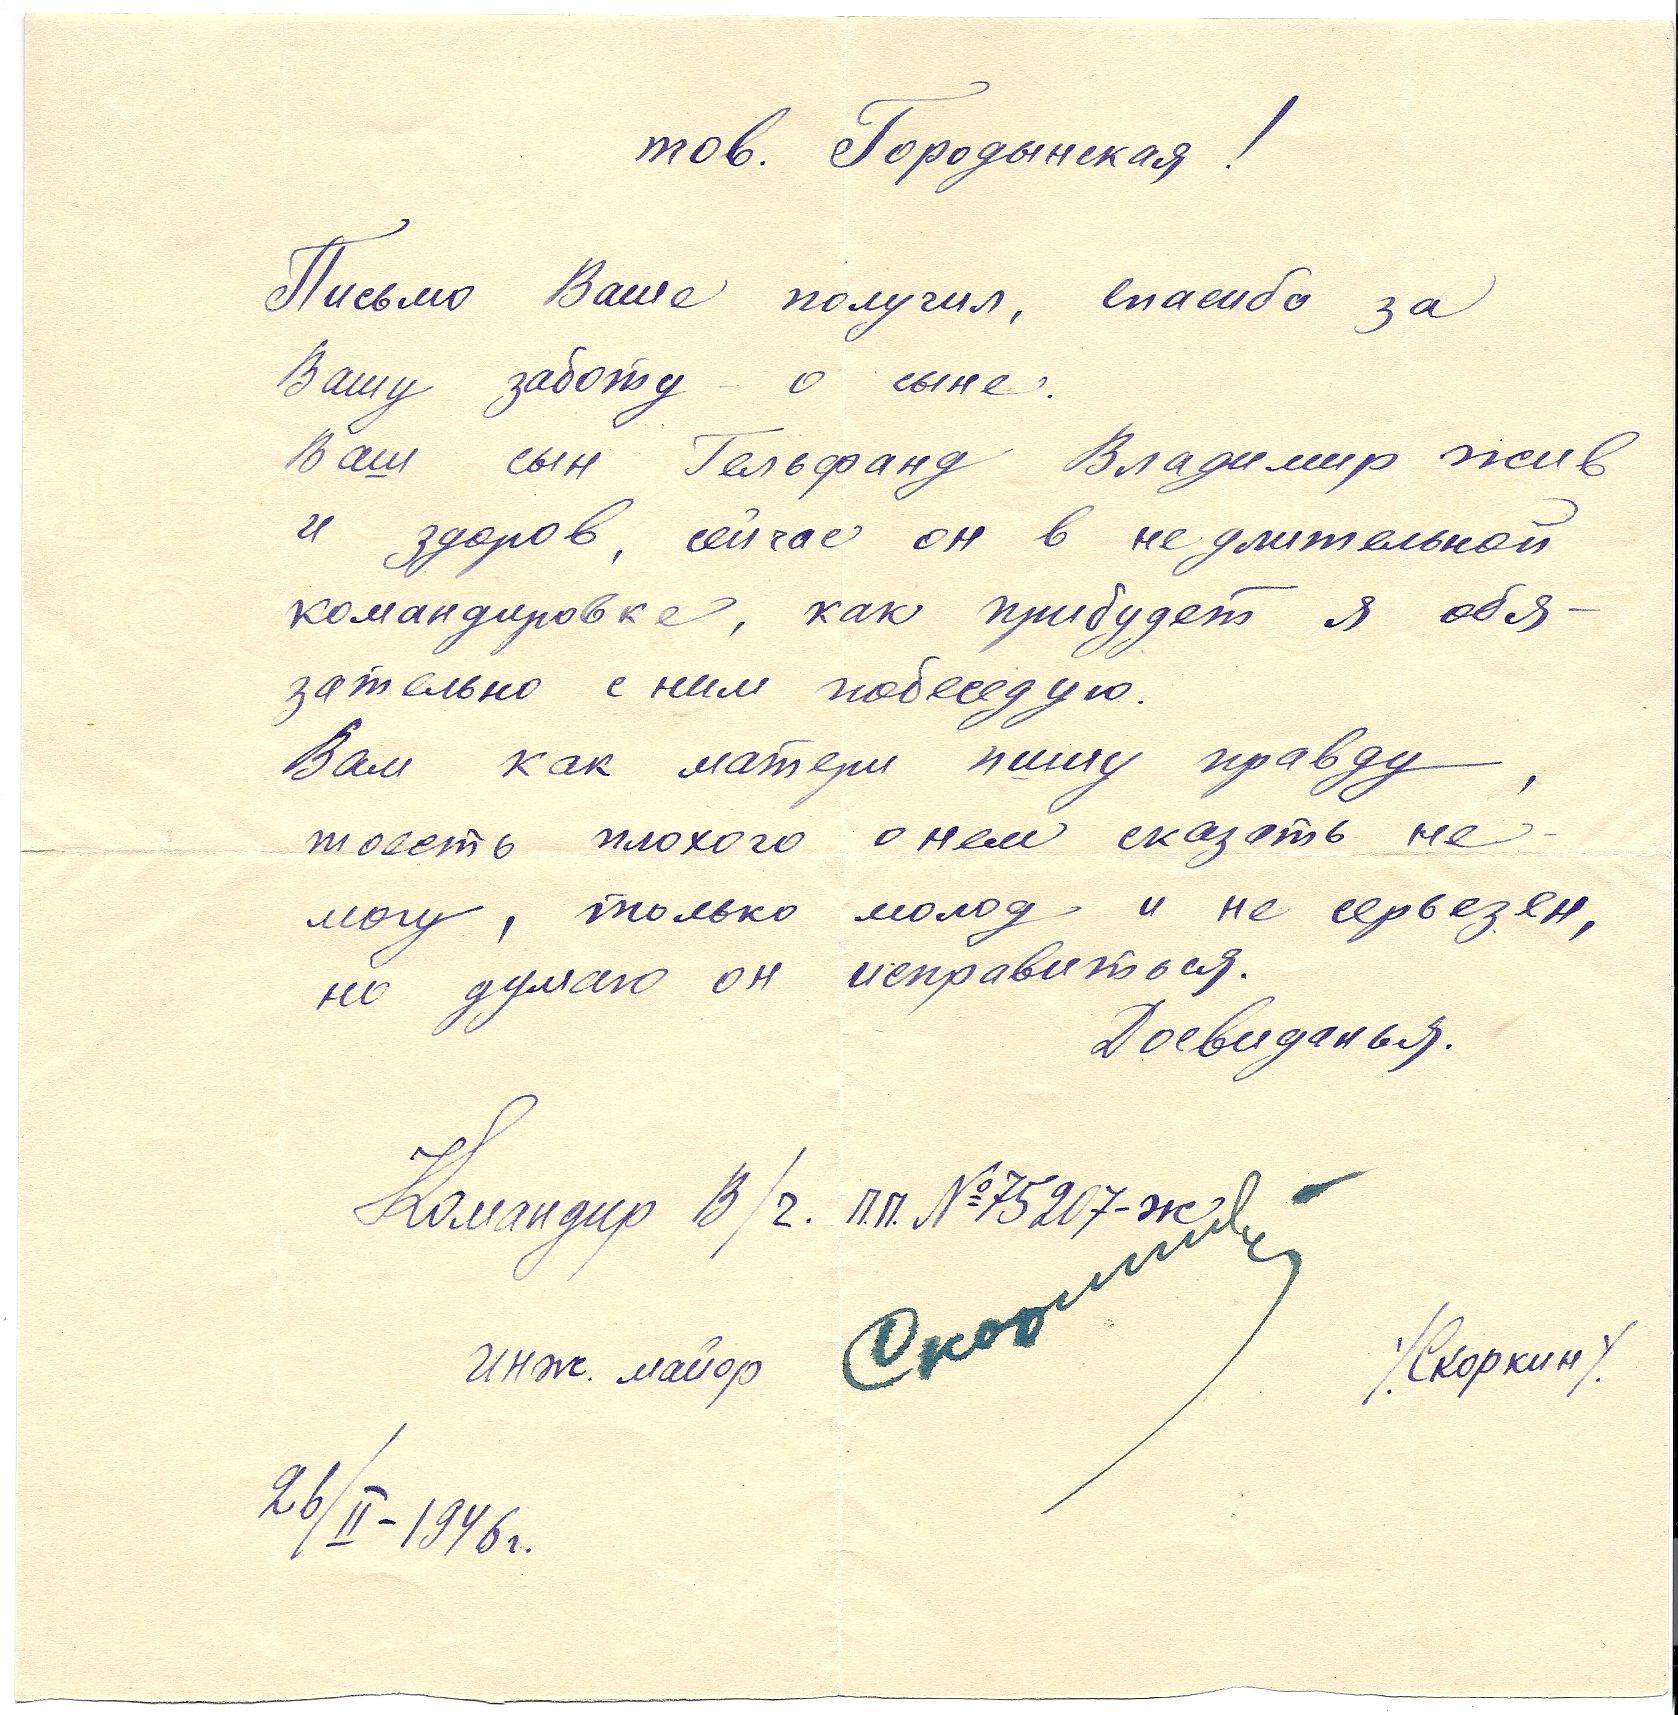 тов. Городынская!
Письмо Ваше получил, спасибо за
Вашу заботу - о сыне.
Ваш сын Гельфанд Владимир жив
и здоров, сейчас он в не длительной
командировке, как прибудет я обя-
зательно с ним побеседую.
Вам как матери пишу правду,
тоесть плохого о нем сказать не-
могу, только молод и не серьезен,
но думаю он исправиться.
Досвиданья.
Командир В/ч. п.п. №75207-ж
инж. майор Скоркин /.Скоркин/.
26/II-1946г.